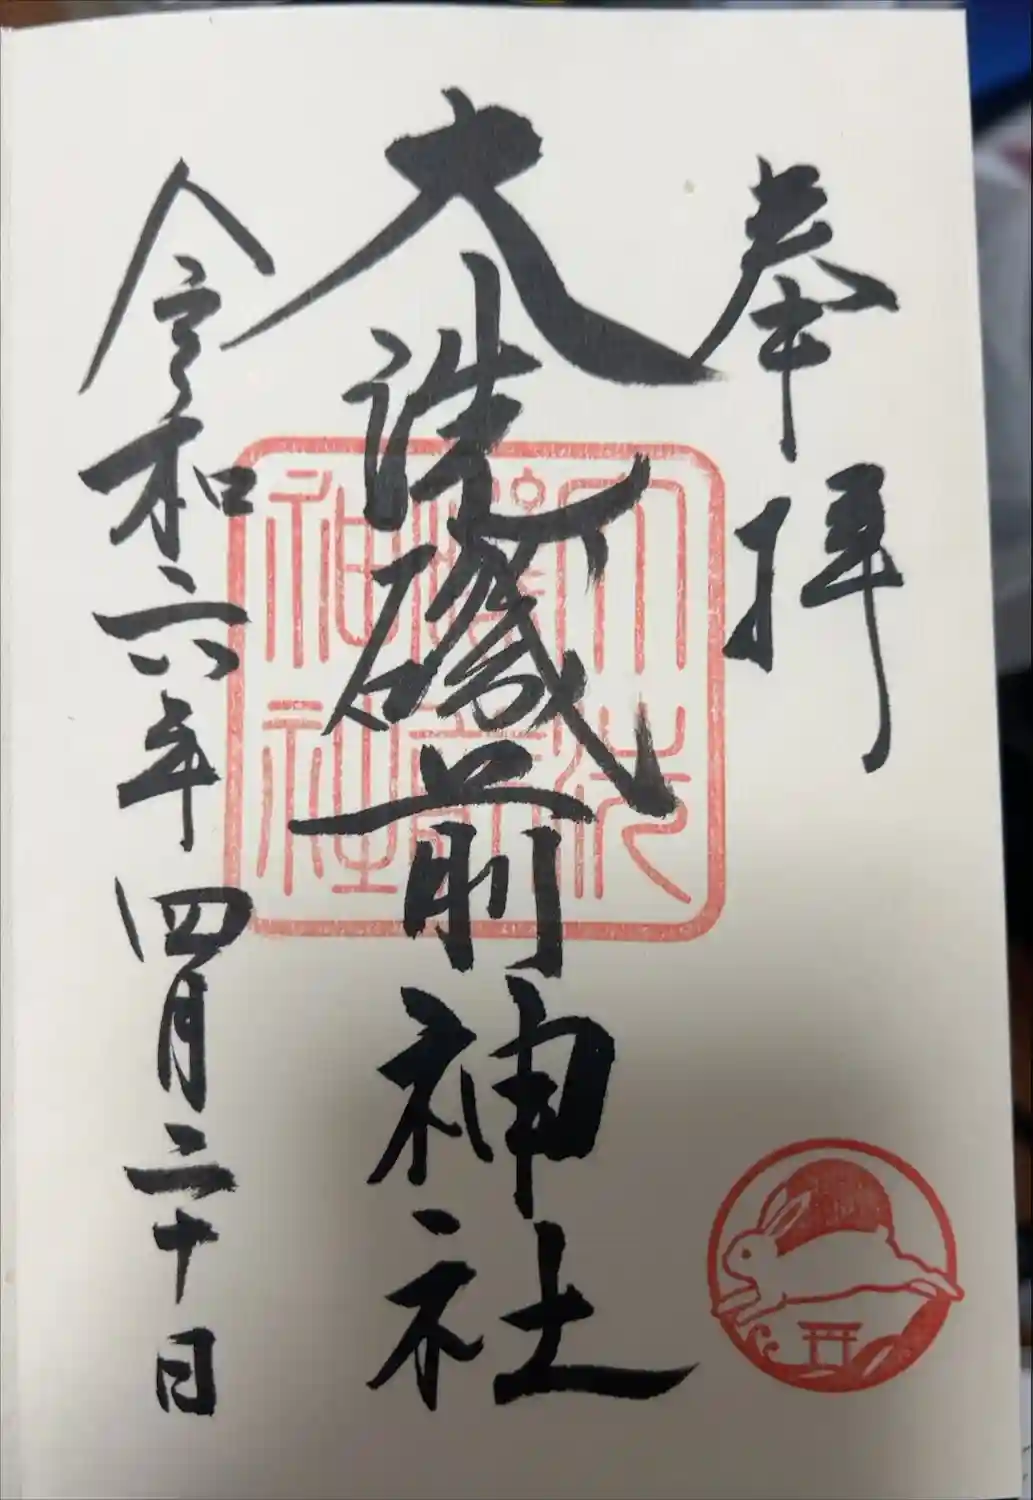 奉拝
大洗磯前神社
令和六年四月二十日
大洗磯前神社